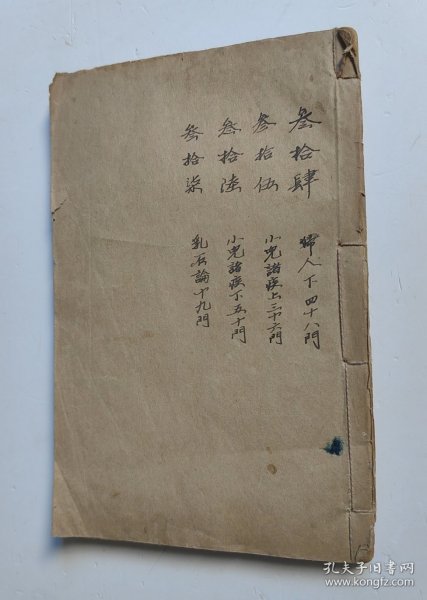 叁拾肆 婦人下四十八門
叁拾伍 小兒諸疾上三十六門
叁拾陸 小兒諸疾下五十門
叁拾柒 乳石論十九門
孔夫子旧书网
www.kongfz.com